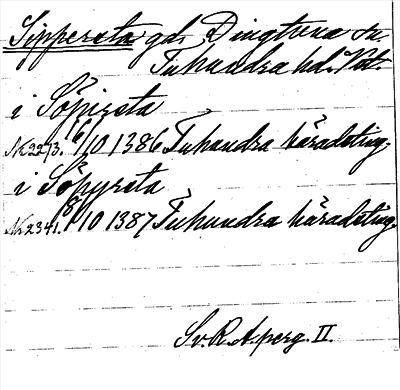 Sippersta gd, Dingtuna sn
Tuhundra hd. Vstm.
i Söpirsta
Nr 2273. 6/10 1386 Tuhundra häradsting.
i Söpyrsta
Nr 2341. 8/10 1387 Tuhundra häradsting.
Sv. R. A. perg. II.